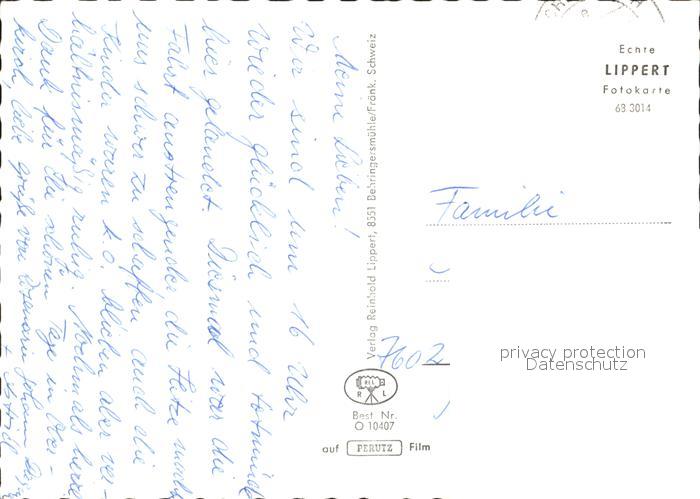 Meine Lieben!
Wir sind um 16 Uhr
wieder glücklich und todmüde
hier gelandet. Diesmal war die
Fahrt anstrengender die Hitze machte
uns schwer zu schaffen auch die
Kinder waren k.o. blieben aber ver-
hältnismäßig ruhig. Nochmals herzl.
Dank für die schönen Tage in Ober-
kirch, liebe Grüße von Rosemarie Johann
Verlag Reinhold Lippert, 8551 Behringersmühle/Fränk. Schweiz
Echte
LIPPERT
Fotokarte
68 3014
Familie
7602
privacy protection
Datenschutz
R L
Best Nr.
O 10407
auf PERUTZ Film